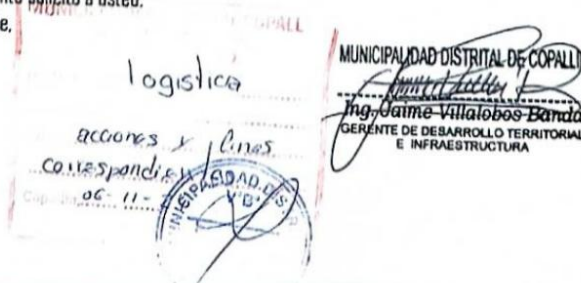 usted.
e,
COPALL
logística
acciones y fines
correspondien
06-11-
MUNICIPALIDAD DIS
V°B°
MUNICIPALIDAD DISTRITAL DE COPALLI
Ing. Jaime Villalobos Banda
GERENTE DE DESARROLLO TERRITORIAL
E INFRAESTRUCTURA